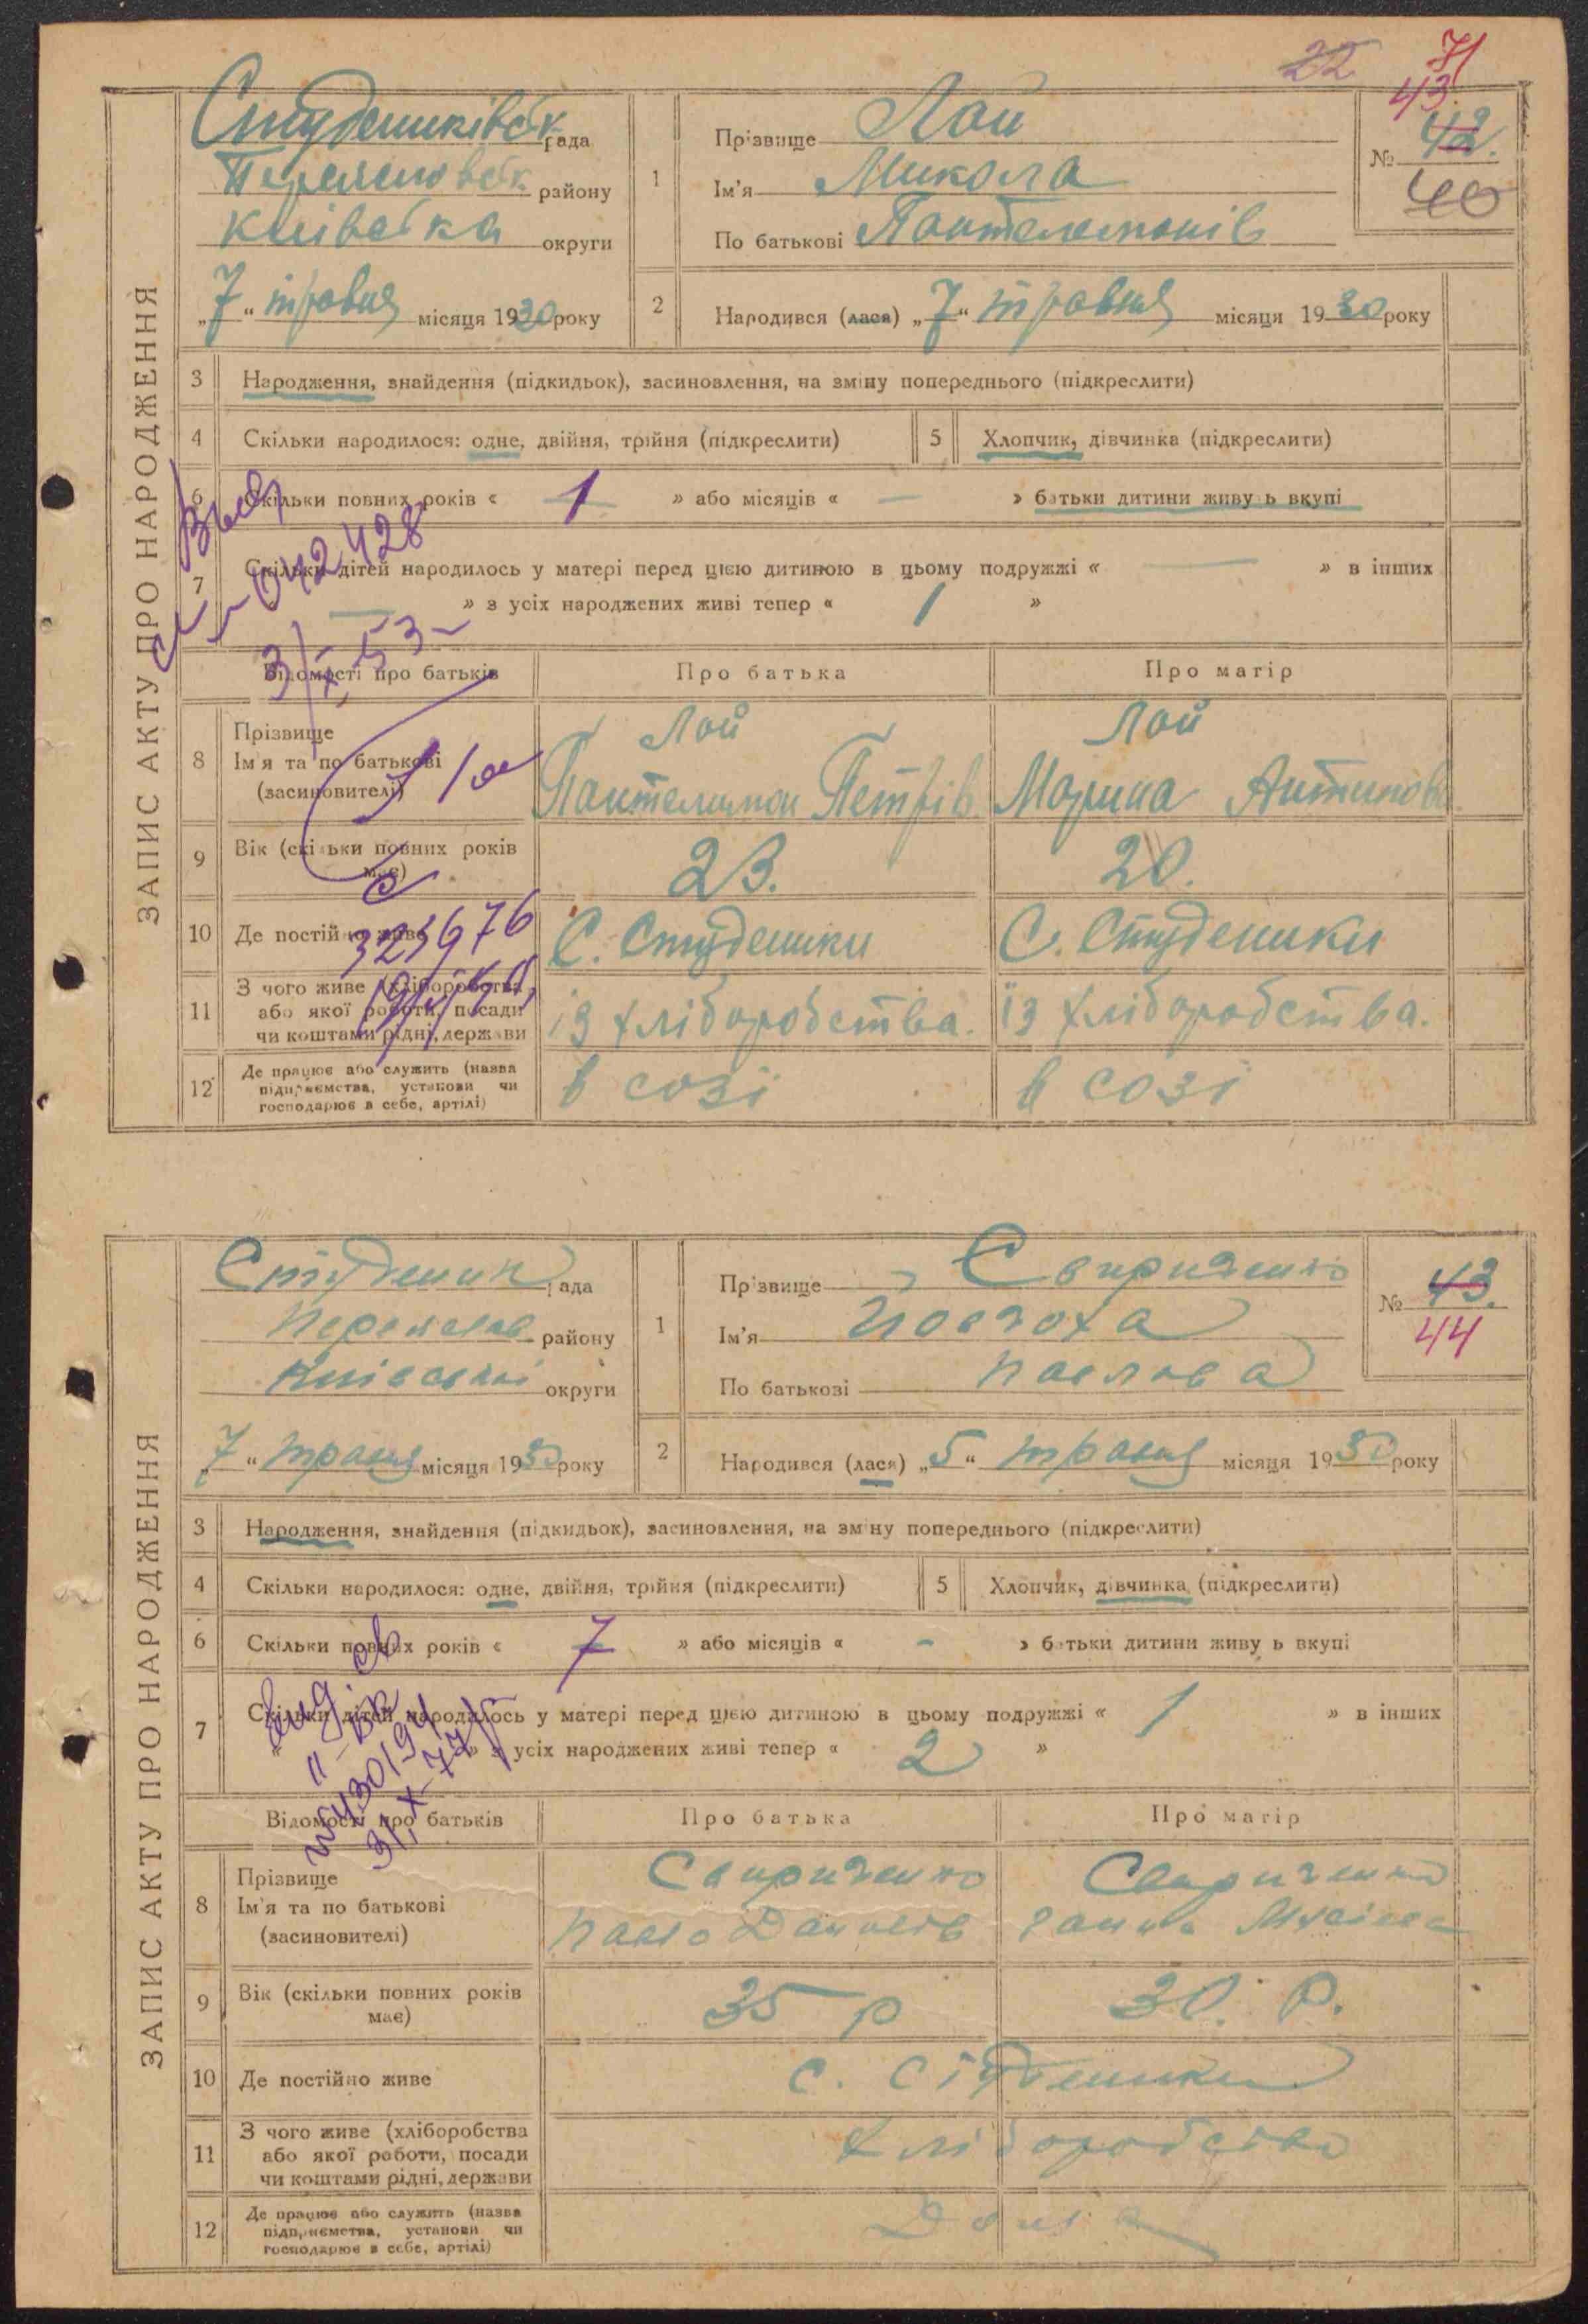 22 71
43
ЗАПИС АКТУ ПРО НАРОДЖЕННЯ
Студениківськ рада
Переяславськ району
Київська округи
„7“ травня місяця 1930 року
1
Прізвище Лой
Ім'я Микола
По батькові Пантелемонів
№ 42.
40
2 Народився (лася) „7“ травня місяця 1930 року
3 Народження, знайдення (підкидьок), засиновлення, на зміну попереднього (підкреслити)
4 Скільки народилося: одне, двійня, трійня (підкреслити)
5 Хлопчик, дівчинка (підкреслити)
6 Скільки повних років « 1 » або місяців « — » батьки дитини живуть вкупі
7 Скільки дітей народилось у матері перед цією дитиною в цьому подружжі « — » в інших
« — » з усіх народжених живі тепер « 1 »
042428
Відомості про батьків
Про батька
Про матір
8 Прізвище
Ім'я та по батькові
(засиновителі)
Лой
Пантелимон Петрів
Лой
Марина Антипова
9 Вік (скільки повних років
має)
23.
20.
10 Де постійно живе
С. Студеники
С. Студеники
323976
11 З чого живе (хліборобства
або якої роботи, посади
чи коштами рідні, держави
із хліборобства.
із хліборобства.
12 Де працює або служить (назва
підприємства, установи чи
господарює в себе, артілі)
в созі
в созі
ЗАПИС АКТУ ПРО НАРОДЖЕННЯ
Студеник рада
Переяслав району
Київської округи
„7“ травня місяця 1930 року
1
Прізвище Свириденко
Ім'я
По батькові Павлова
№ 43.
44
2 Народився (лася) „5“ травня місяця 1930 року
3 Народження, знайдення (підкидьок), засиновлення, на зміну попереднього (підкреслити)
4 Скільки народилося: одне, двійня, трійня (підкреслити)
5 Хлопчик, дівчинка (підкреслити)
6 Скільки повних років « 7 » або місяців « - » батьки дитини живуть вкупі
7 Скільки дітей народилось у матері перед цією дитиною в цьому подружжі « 1 » в інших
« » з усіх народжених живі тепер « 2 »
Відомості про батьків
Про батька
Про матір
8 Прізвище
Ім'я та по батькові
(засиновителі)
Свириденко
Павло Данилів
Свириденко
Ганна
9 Вік (скільки повних років
має)
35 р
30. р.
10 Де постійно живе
с. Студеники
11 З чого живе (хліборобства
або якої роботи, посади
чи коштами рідні, держави
Хліборобство
12 Де працює або служить (назва
підприємства, установи чи
господарює в себе, артілі)
Дома